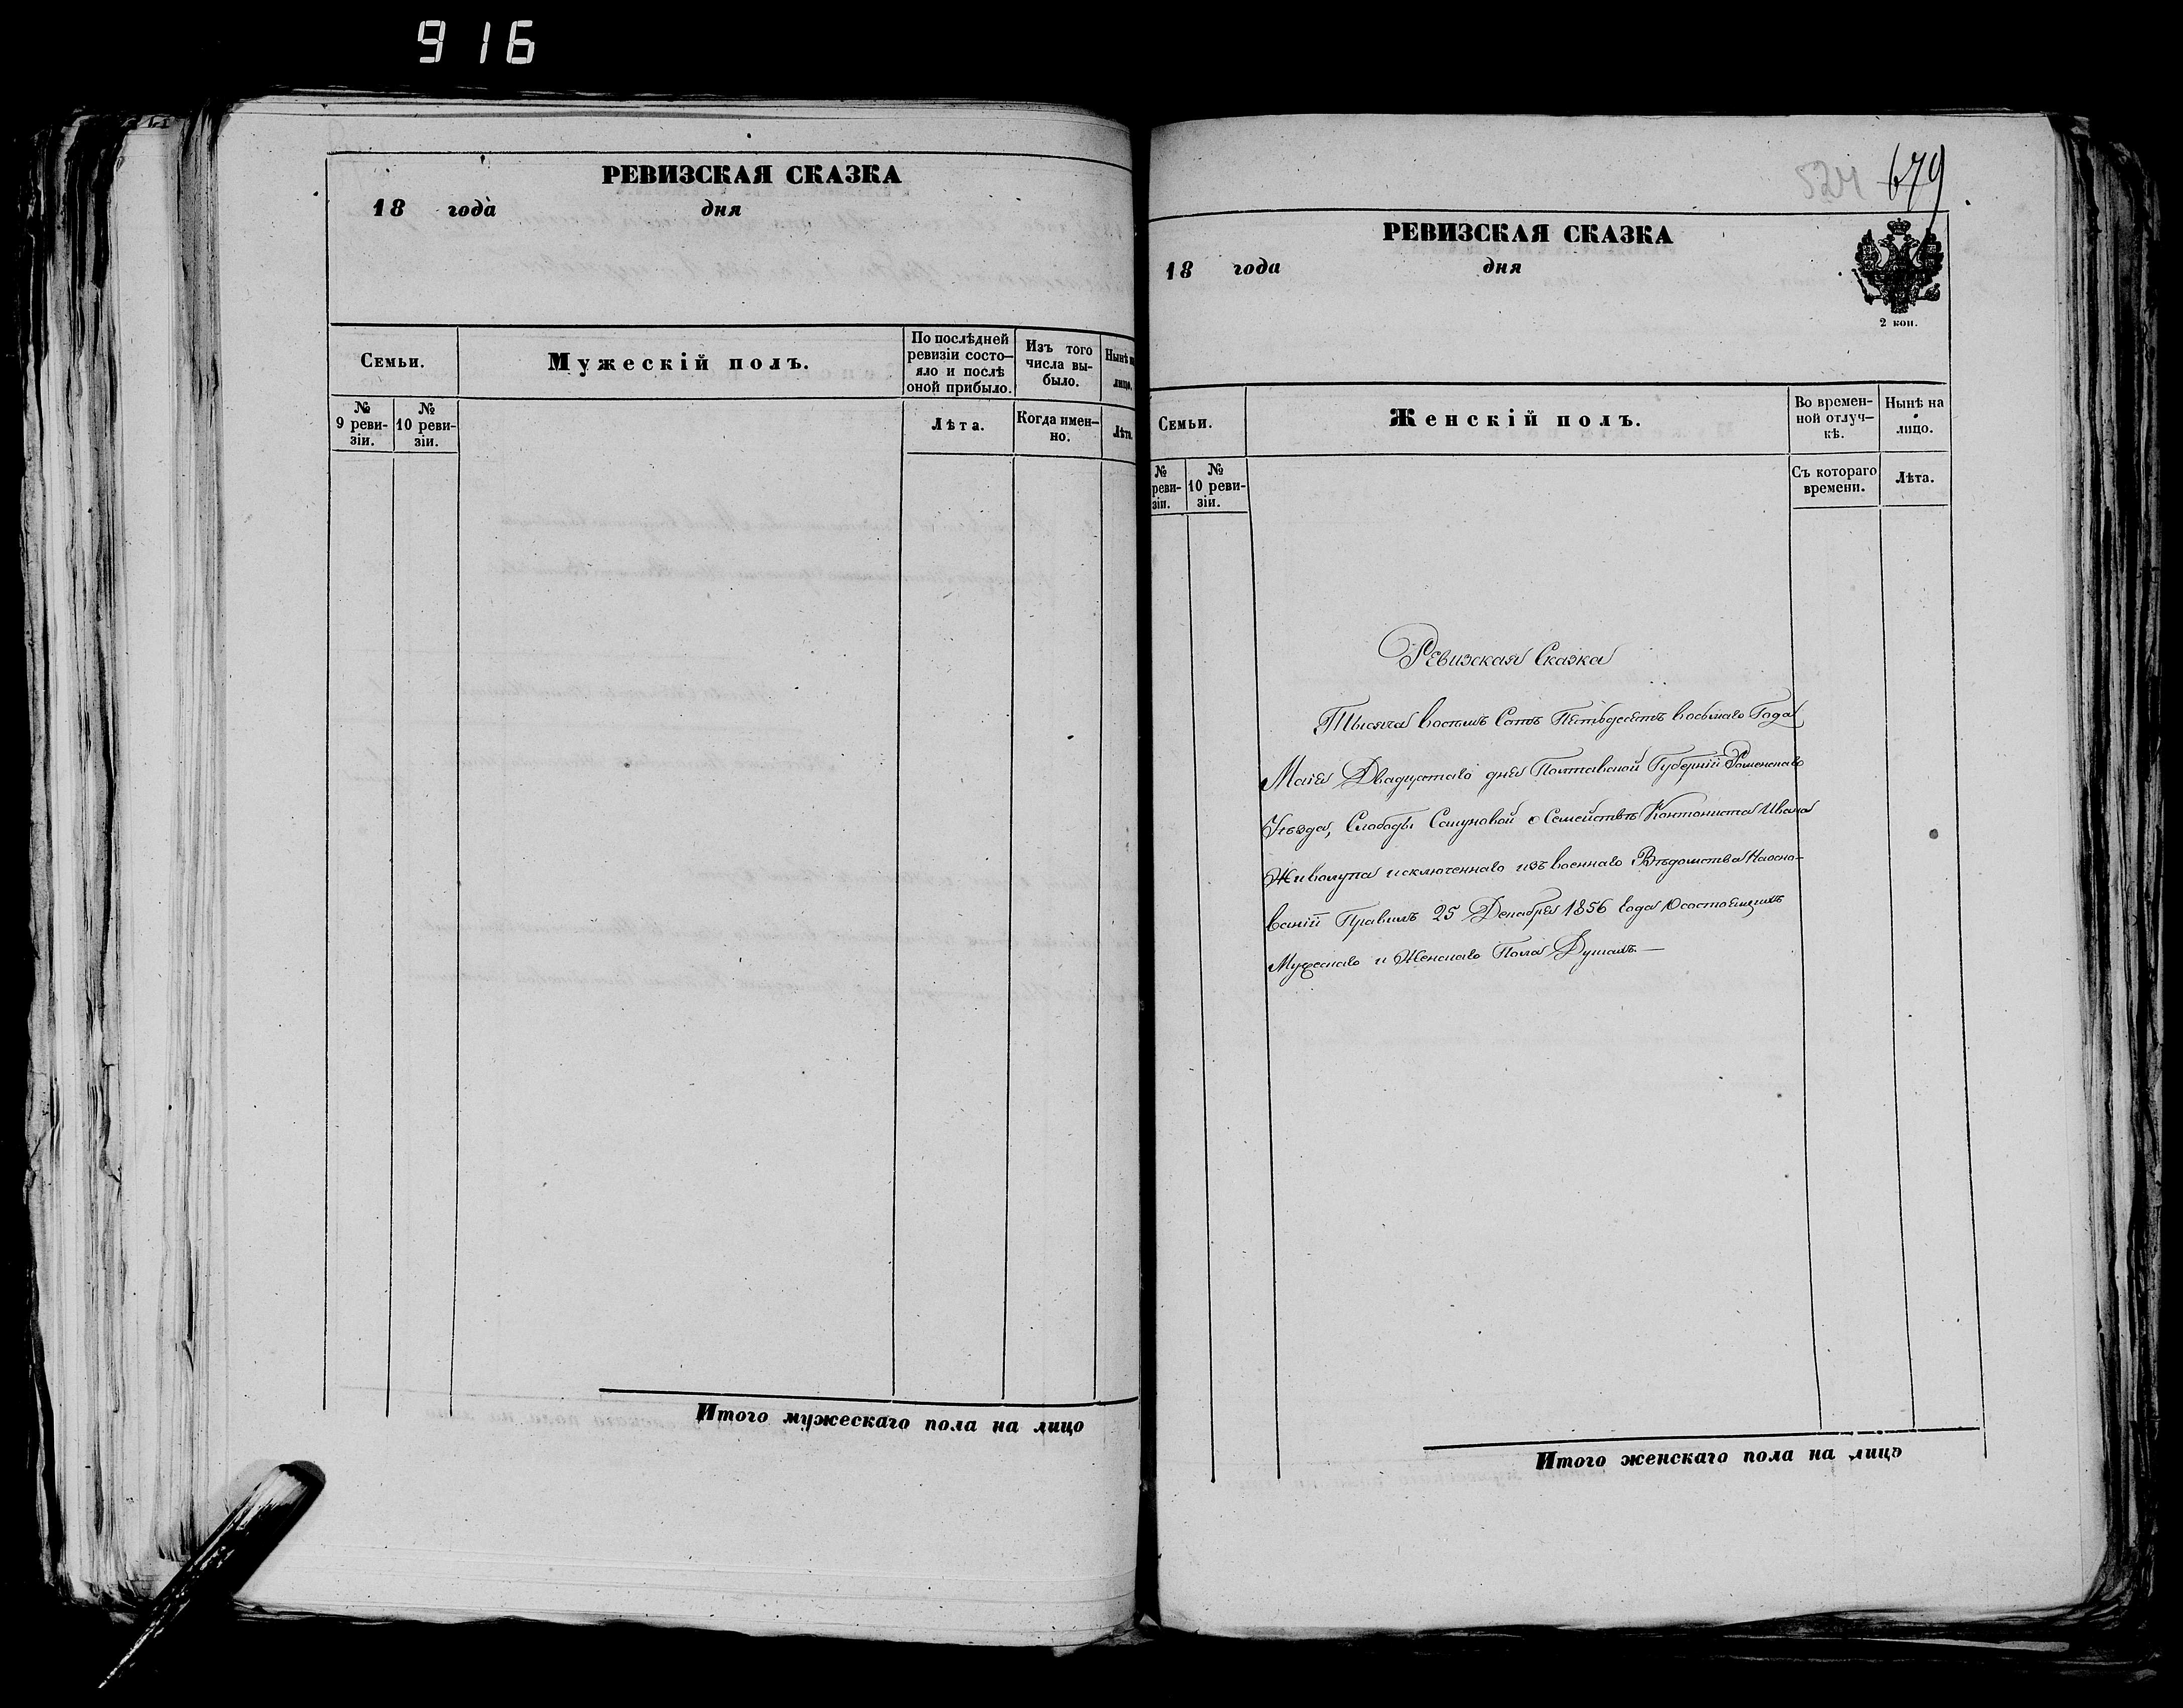 916
РЕВИЗСКАЯ СКАЗКА
18 года дня
Семьи.
Мужескій полъ.
По послѣдней ревизіи состо-
яло и послѣ
оной прибыло.
Изъ того
числа вы-
было.
Нынѣ
лицо.
№
9 реви-
зіи.
№
10 реви-
зіи.
Лѣта.
Когда имен-
но.
Лѣта.
Итого мужескаго пола на лицо
524 679
РЕВИЗСКАЯ СКАЗКА
18 года дня
2 коп.
Семьи.
Женскій полъ.
Во времен-
ной отлуч-
кѣ.
Нынѣ на
лицо.
№
реви-
зіи.
№
10 реви-
зіи.
Съ котораго
времени.
Лѣта.
Ревизская Сказка
Тысяча восемь Сотъ Пятьдесятъ восьмаго Года
Маія Двадцатаго дня Полтавской Губерніи Роменскаго
Уѣзда, Слободы Сакуновой о Семействѣ Кантониста Ивана
Живолупа исключеннаго изъ военнаго Вѣдомства Наосно-
ваніи Правилъ 25 Декабря 1856 года Осостоящихъ
Мужескаго и Женскаго Пола Душахъ.—
Итого женскаго пола на лицо